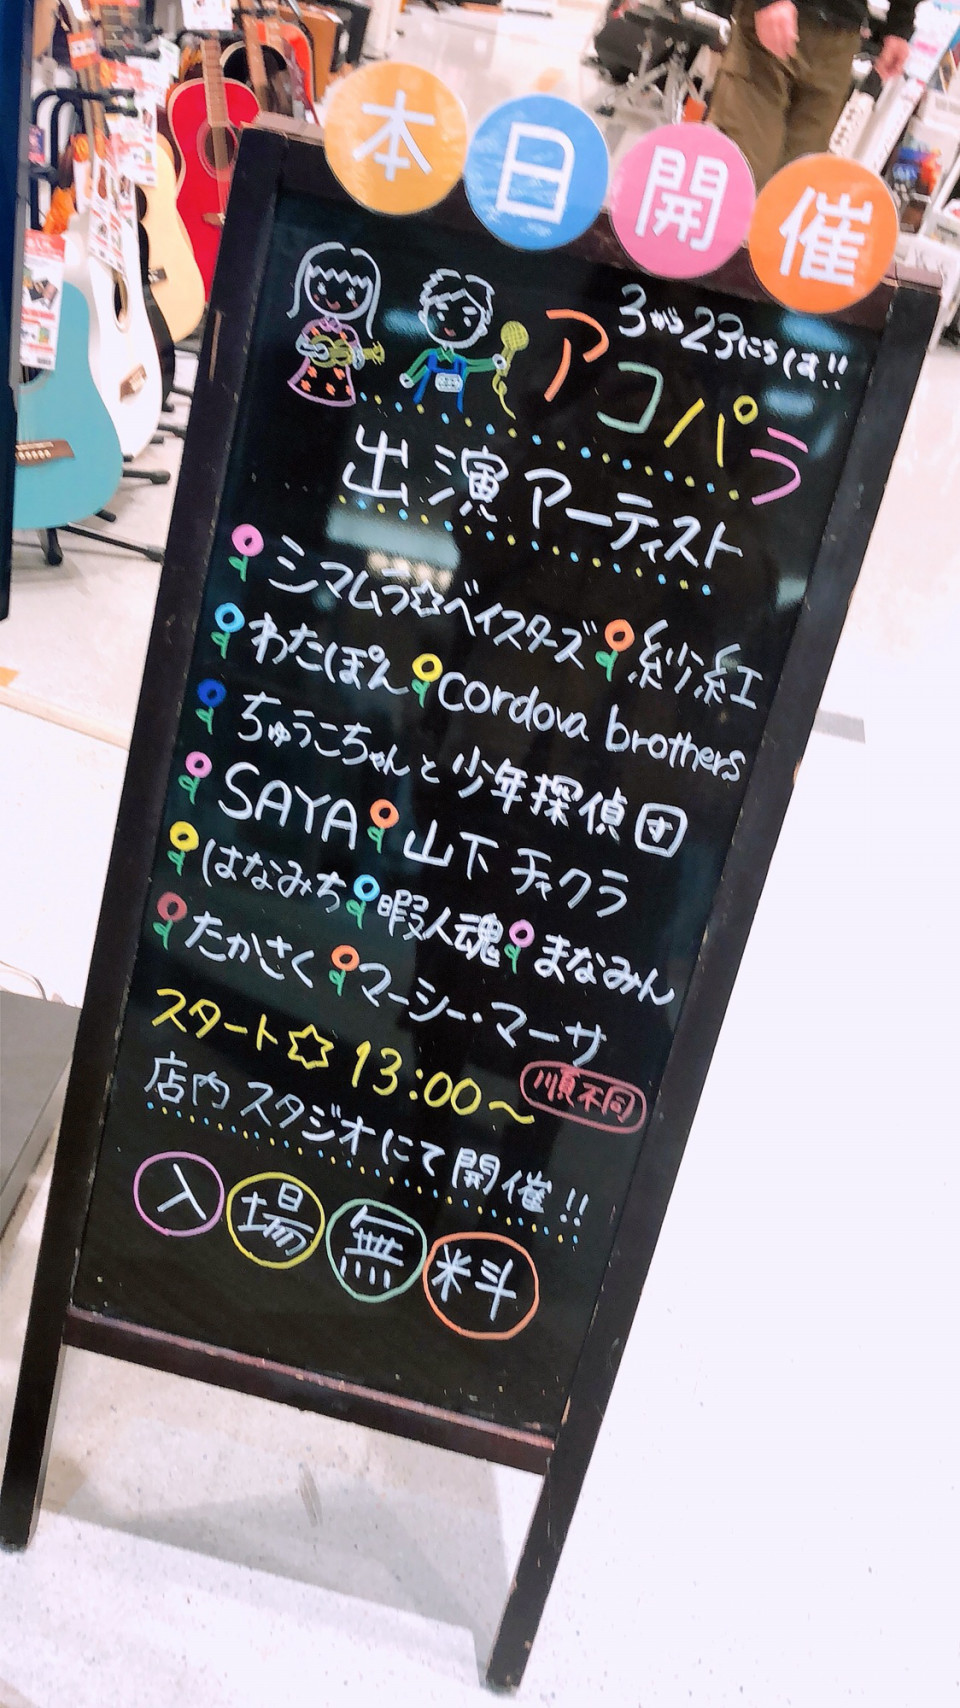 本日開催
3から23にちは!!
アコパラ
出演アーティスト
シマムラ☆ベイスターズ 紗紅
わたぽん cordova brothers
ちゅうこちゃんと少年探偵団
SAYA 山下チャクラ
はなみち 暇人魂 まなみん
たかさく マーシー・マーサ
スタート☆13:00〜 順不同
店内スタジオにて開催!!
入場無料